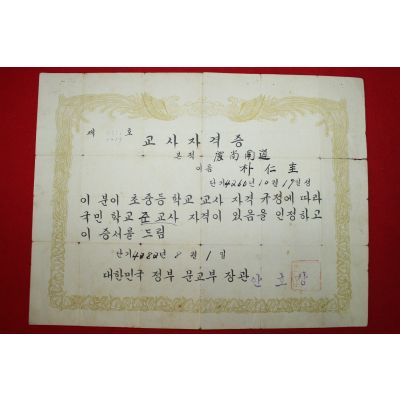 제 호
교사자격증
본적 慶尚南道
이름 朴仁圭
단기4260년10월19일생
이 분이 초중등 학교 교사 자격 규정에 따라
국민 학교 준교사 자격이 있음을 인정하고
이 증서를 드림
단기4282년 8월 1일
대한민국 정부 문교부 장관 안호상